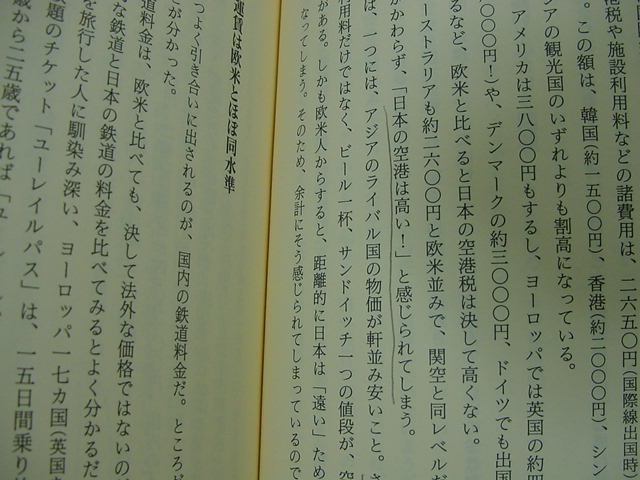 港税や施設利用料などの諸費用は、二六五〇円(国際線出国時)
。この額は、韓国(約一五〇〇円)、香港(約二〇〇〇円)、シン
ジアの観光国のいずれよりも割高になっている。
アメリカは三八〇〇円もするし、ヨーロッパでは英国の約四
〇〇〇円!)や、デンマークの約三〇〇〇円、ドイツでも出国
るなど、欧米と比べると日本の空港税は決して高くない。
ーストラリアも約二六〇〇円と欧米並みで、関空と同レベルだ
かかわらず、「日本の空港は高い!」と感じられてしまう。
は、一つには、アジアのライバル国の物価が軒並み安いこと。さ
利用料だけではなく、ビール一杯、サンドイッチ一つの値段が、空
がある。しかも欧米人からすると、距離的に日本は「遠い」ため
なってしまう。そのため、余計にそう感じられてしまっているので
運賃は欧米とほぼ同水準
つよく引き合いに出されるのが、国内の鉄道料金だ。ところが
とが分かった。
道料金は、欧米と比べても、決して法外な価格ではないのが
な鉄道と日本の鉄道の料金を比べてみるとよく分かるだ
を旅行した人に馴染み深い、ヨーロッパ一七カ国(英国を
題のチケット「ユーレイルパス」は、一五日間乗り
歳から二五歳であれば「ユ